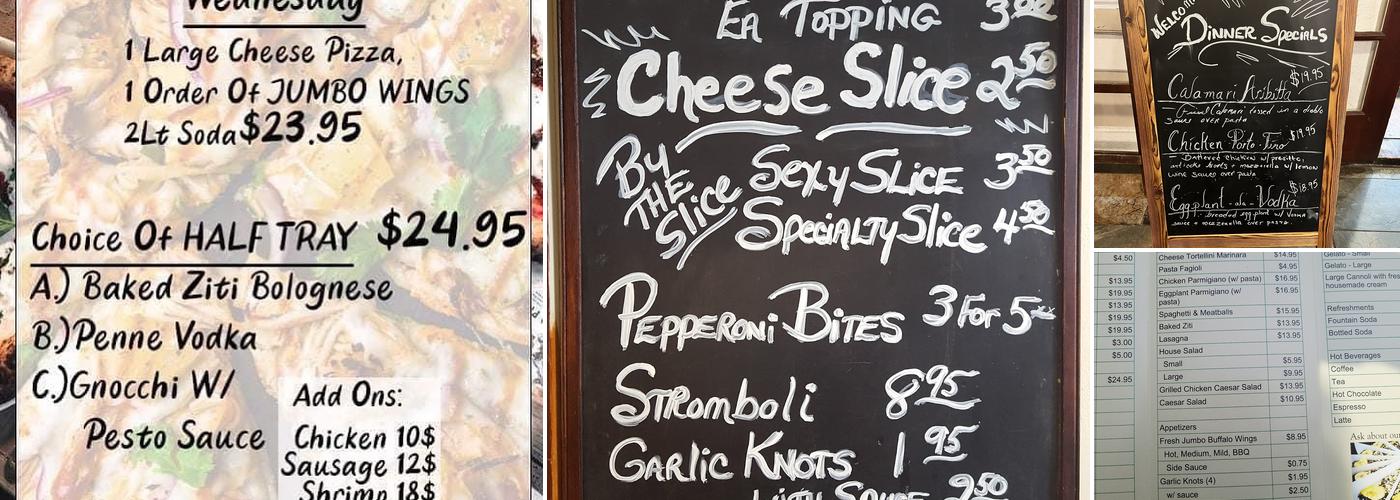 Wednesday
1 Large Cheese Pizza,
1 Order Of JUMBO WINGS
2Lt Soda $23.95
Choice Of HALF TRAY $24.95
A.) Baked Ziti Bolognese
B.) Penne Vodka
C.) Gnocchi W/
Pesto Sauce
Add Ons:
Chicken 10$
Sausage 12$
Shrimp 18$
EA TOPPING 3.00
Cheese Slice 2.50
By THE Slice
SEXY SLICE 3.50
SPECIALTY Slice 4.50
PEPPERONi BITES 3 FOR 5
STROMboli 8.95
GARLIC KNOTS 1.95
WITH SAUCE 2.50
WELCOME
DINNER SPECIALS
Calamari Aribitta $19.95
Fried Calamari tossed in a diablo
sauce over pasta
Chicken Porto-Fino $19.95
Battered Chicken w/
w/ lemon
wine sauce over pasta
Eggplant-ala-Vodka $18.95
breaded eggplant w/ Vodka
sauce + mozzarella over pasta.
$4.50
$13.95
$19.95
$13.95
$19.95
$19.95
$3.00
$5.00
$24.95
Cheese Tortellini Marinara $14.95
Pasta Fagioli $4.95
Chicken Parmigiano (w/ pasta) $16.95
Eggplant Parmigiano (w/ $16.95
pasta)
Spaghetti & Meatballs $15.95
Baked Ziti $13.95
Lasagna $13.95
House Salad
Small $5.95
Large $9.95
Grilled Chicken Caesar Salad $13.95
Caesar Salad $10.95
Appetizers
Fresh Jumbo Buffalo Wings $8.95
Hot, Medium, Mild, BBQ
Side Sauce $0.75
Garlic Knots (4) $1.95
w/ sauce $2.50
Gelato - Small
Gelato - Large
Large Cannoli with fres
housemade cream
Refreshments
Fountain Soda
Bottled Soda
Hot Beverages
Coffee
Tea
Hot Chocolate
Espresso
Latte
Ask about ou